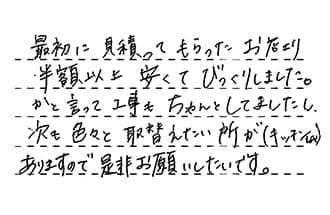 最初に見積ってもらったお店より
半額以上安くてびっくりしました。
かと言って工事もちゃんとしてましたし、
次も色々と取替えたい所が(キッチン他)
ありますので是非お願いしたいです。